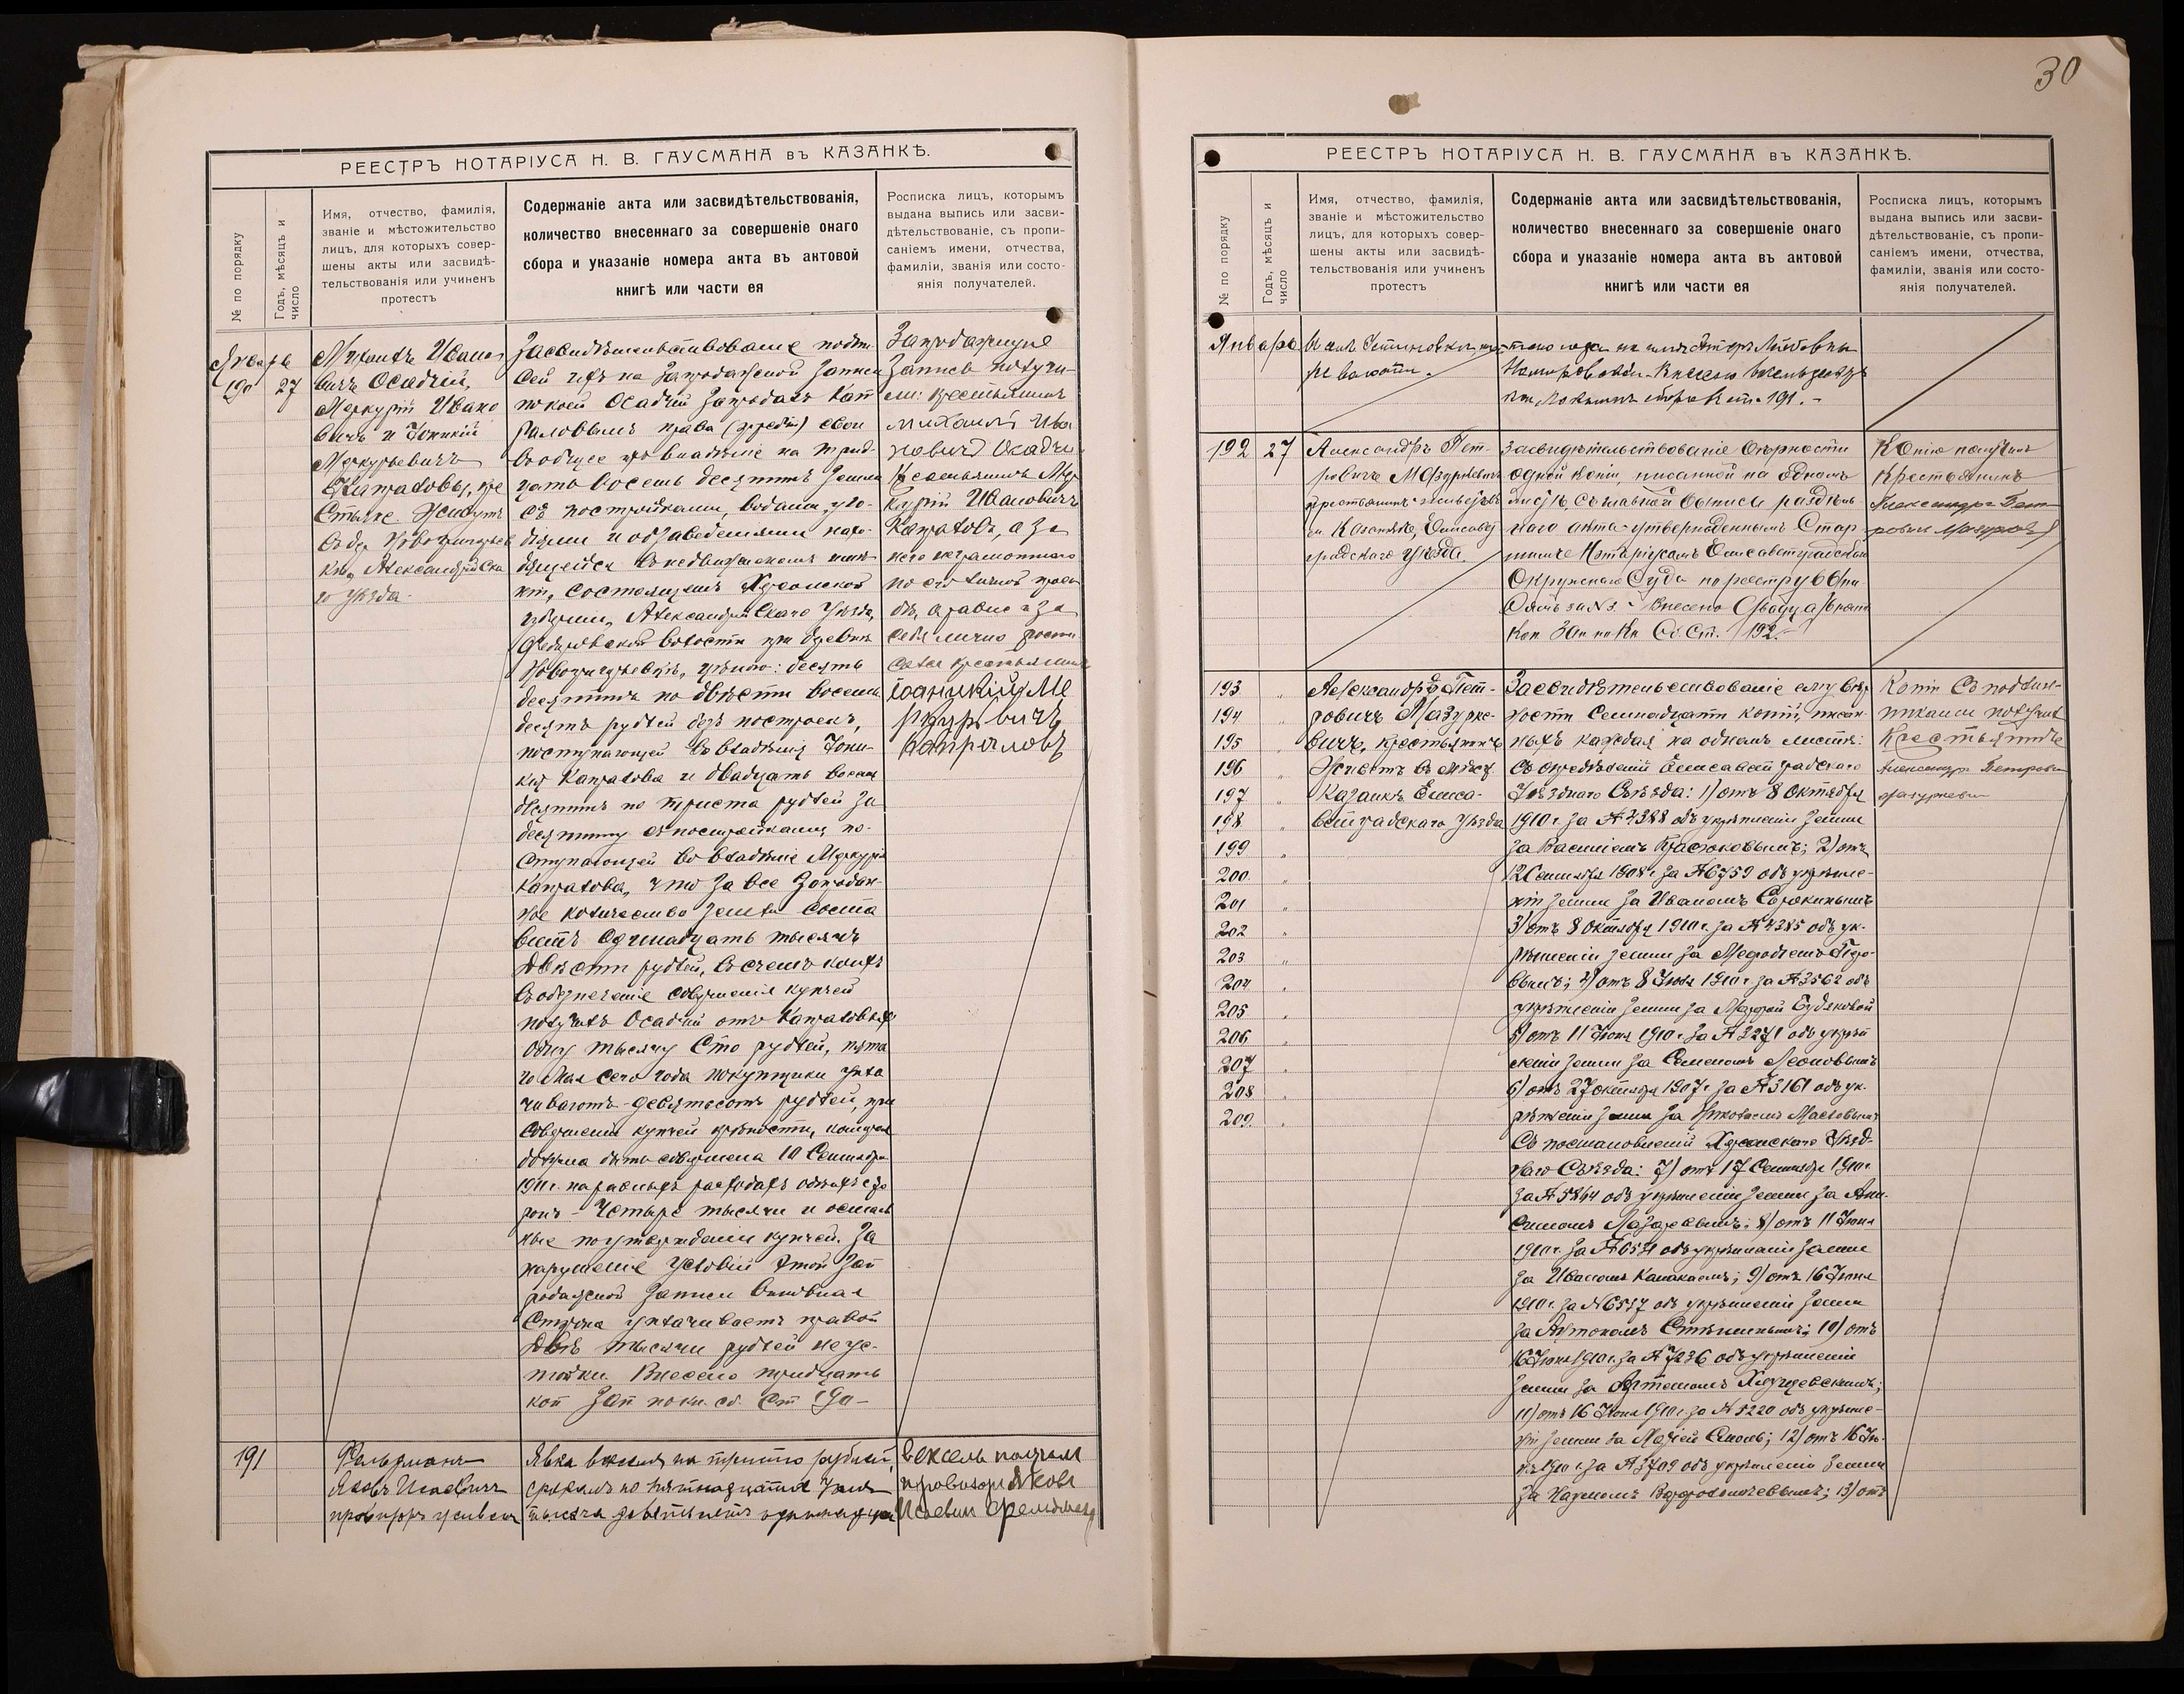 30
РЕЕСТРЪ НОТАРІУСА Н. В. ГАУСМАНА въ КАЗАНКѢ.
№ по порядку
Годъ, мѣсяцъ и число
Имя, отчество, фамилія,
званіе и мѣстожительство
лицъ, для которыхъ совер-
шены акты или засвидѣ-
тельствованія или учиненъ
протестъ
Содержаніе акта или засвидѣтельствованія,
количество внесеннаго за совершеніе онаго
сбора и указаніе номера акта въ актовой
книгѣ или части ея
Росписка лицъ, которымъ
выдана выпись или засви-
дѣтельствованіе, съ пропи-
саніемъ имени, отчества,
фамиліи, званія или состо-
янія получателей.
Январь
190 27
Михаилъ Ивано
вичъ Осадчій,
Меркурій Ивано
вичъ и Іоникій
Меркурьевичъ
Капраловы, кре
стьяне. Живутъ
въ дер.
Александрійска
го уѣзда.
Засвидѣтельствованіе подпи-
сей ихъ на запродажной записи
по коей Осадчій запродалъ Кап
раловымъ права свои
въ общее владѣніе на трид-
цать восемь десятинъ земли
съ постройками, водами, уго-
діями и обзаведеніями нахо-
дящейся въ недвижимомъ имѣ-
ніи, состоящемъ Херсонской
губерніи, Александрійскаго уѣзда,
волости при деревнѣ
десять
десятинъ по двѣсти восемь
десятъ рублей безъ построекъ,
поступающей во владѣнія Іони-
кія Капралова и двадцать восемь
десятинъ по триста рублей за
десятину съ постройками, по-
ступающей во владѣніе Меркурія
Капралова, что за все запродан-
ное количество земли соста
витъ одиннадцать тысячъ
двѣсти рублей, въ счетъ коихъ
въ обезпеченіе совершенія купчей
получилъ Осадчій отъ Капраловыхъ
одну тысячу сто рублей, пята
го мая сего года покупщики упла
чиваютъ девятьсотъ рублей, при
совершеніи купчей крѣпости, которая
должна быть совершена 10 Сентября
1911 г. на равныхъ расходахъ обѣихъ сто
ронъ - четыре тысячи и осталь
ные по утвержденіи купчей. За
нарушеніе условій этой зап
родажной записи виновная
сторона уплачиваетъ правой
двѣ тысячи рублей неус-
тойки. Внесено тридцать
коп зап по кн. сб. ст 190 -
Запродажную
запись получи-
ли: крестьянинъ
Михаилъ Ива
новичъ Осадчій
Крестьянинъ Мер
курій Ивановичъ
Капраловъ, а за
него неграмотнаго
по его личной прось
бѣ, а равно и за
себя лично роспи
сался крестьянинъ
Іоникій Ме
ркурьвичъ
Капраловъ
191
Фельдманъ
Яковъ Исаевичъ
провизоръ
Явка векселя на триста рублей,
срокомъ по пятнадцатое Іюля
тысяча девятьсотъ одиннадца
Вексель получилъ
провизоръ Яковъ
Исаевич Фельдманъ
РЕЕСТРЪ НОТАРІУСА Н. В. ГАУСМАНА въ КАЗАНКѢ.
№ по порядку
Годъ, мѣсяцъ и число
Имя, отчество, фамилія,
званіе и мѣстожительство
лицъ, для которыхъ совер-
шены акты или засвидѣ-
тельствованія или учиненъ
протестъ
Содержаніе акта или засвидѣтельствованія,
количество внесеннаго за совершеніе онаго
сбора и указаніе номера акта въ актовой
книгѣ или части ея
Росписка лицъ, которымъ
выдана выпись или засви-
дѣтельствованіе, съ пропи-
саніемъ имени, отчества,
фамиліи, званія или состо-
янія получателей.
Января
таго года на имя
ст. 191. -
192 27
Александръ Пет-
ровичъ Мазуркевичъ
крестьянинъ живетъ въ
м. Казанкѣ, Елисавет
градскаго уѣзда.
Засвидѣтельствованіе вѣрности
одной копіи, писанной на одномъ
листѣ, съ главной выписи раздѣль
наго акта утвержденнымъ Стар
шимъ Нотаріусомъ Елисаветградскаго
Окружнаго Суда по реестру
за № Внесено Сбора двадцать
коп Зап по Кн Сб. Ст. 192.-
Копію получилъ
Крестьянинъ
Александръ Пет
ровичъ Мазуркевичъ
193
194
195
196
197
198
199
200
201
202
203
204
205
206
207
208
209
Александръ Пет-
ровичъ Мазурке-
вичъ, крестьянинъ
Живетъ въ мѣст.
Казанкѣ Елиса-
ветградскаго уѣзда
Засвидѣтельствованіе ему вѣр
ности семнадцати копій, писан-
ныхъ каждая на одномъ листѣ:
съ опредѣленій Елисаветградскаго
Уѣзднаго Съѣзда: 1) отъ 8 Октября
1910 г. за № 4388 объ укрѣпленіи земли
за Василіемъ 2) отъ
12 Сентября 1908 г. за № 6759 объ укрѣпле-
ніи земли за Иваномъ Сорокинымъ
3) отъ 8 Октября 1910 г. за № 4385 объ ук-
рѣпленіи земли за Мефодіемъ
4) отъ 8 Іюля 1910 г. за № 3562 объ
укрѣпленіи земли за Марфой
5) отъ 11 Іюня 1910 г. за № 3271 объ укрѣп
леніи земли за Семеномъ Леоновымъ
6) отъ 27 Октября 1907 г. за № 3161 объ ук-
рѣпленіи земли за Николаемъ Масловымъ
Съ постановленій Херсонскаго Уѣзд-
наго Съѣзда: 7) отъ 17 Сентября 1910 г.
за № 5864 объ укрѣпленіи земли за Они-
симомъ Лазаревымъ; 8) отъ 11 Іюня
1910 г. за № 6571 объ укрѣпленіи земли
за Иваномъ 9) отъ 16 Іюня
1910 г. за № 6557 объ укрѣпленіи земли
за 10) отъ
16 Іюня 1910 г. за № 7236 объ укрѣпленіи
земли за Артемомъ
11) отъ 16 Іюня 1910 г. за № 5220 объ укрѣпле-
ніи земли за 12) отъ 16 Ію-
ня 1910 г. за № 3709 объ укрѣпленіи земли
за Наумомъ 13) отъ
Копіи съ подлин-
никами получилъ
Крестьянинъ
Александръ Петровичъ
Мазуркевич